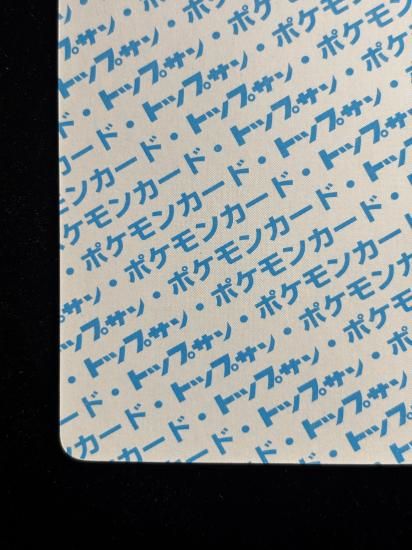 トップサン・
ップサン・ポケモン
ド・トップサン・ポケモン
カード・トップサン・ポケモン
モンカード・トップサン・ポケ
ケモンカード・トップサン・
・ポケモンカード・トップサン
サン・ポケモンカード・トップ
ップサン・ポケモンカード・ト
・トップサン・ポケモンカード
ード・トップサン・ポケモンカ
ンカード・トップサン・ポケモ
カード・トップサン・ポ
ド・トップサン